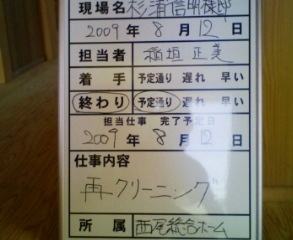 現場名 杉浦信明様邸
2009年 8月 12日
担当者 稲垣 正美
着手 予定通り 遅れ 早い
終わり 予定通り 遅れ 早い
担当仕事 完了予定日
2009年 8月 12日
仕事内容
再クリーニング
所属 西尾総合ホーム